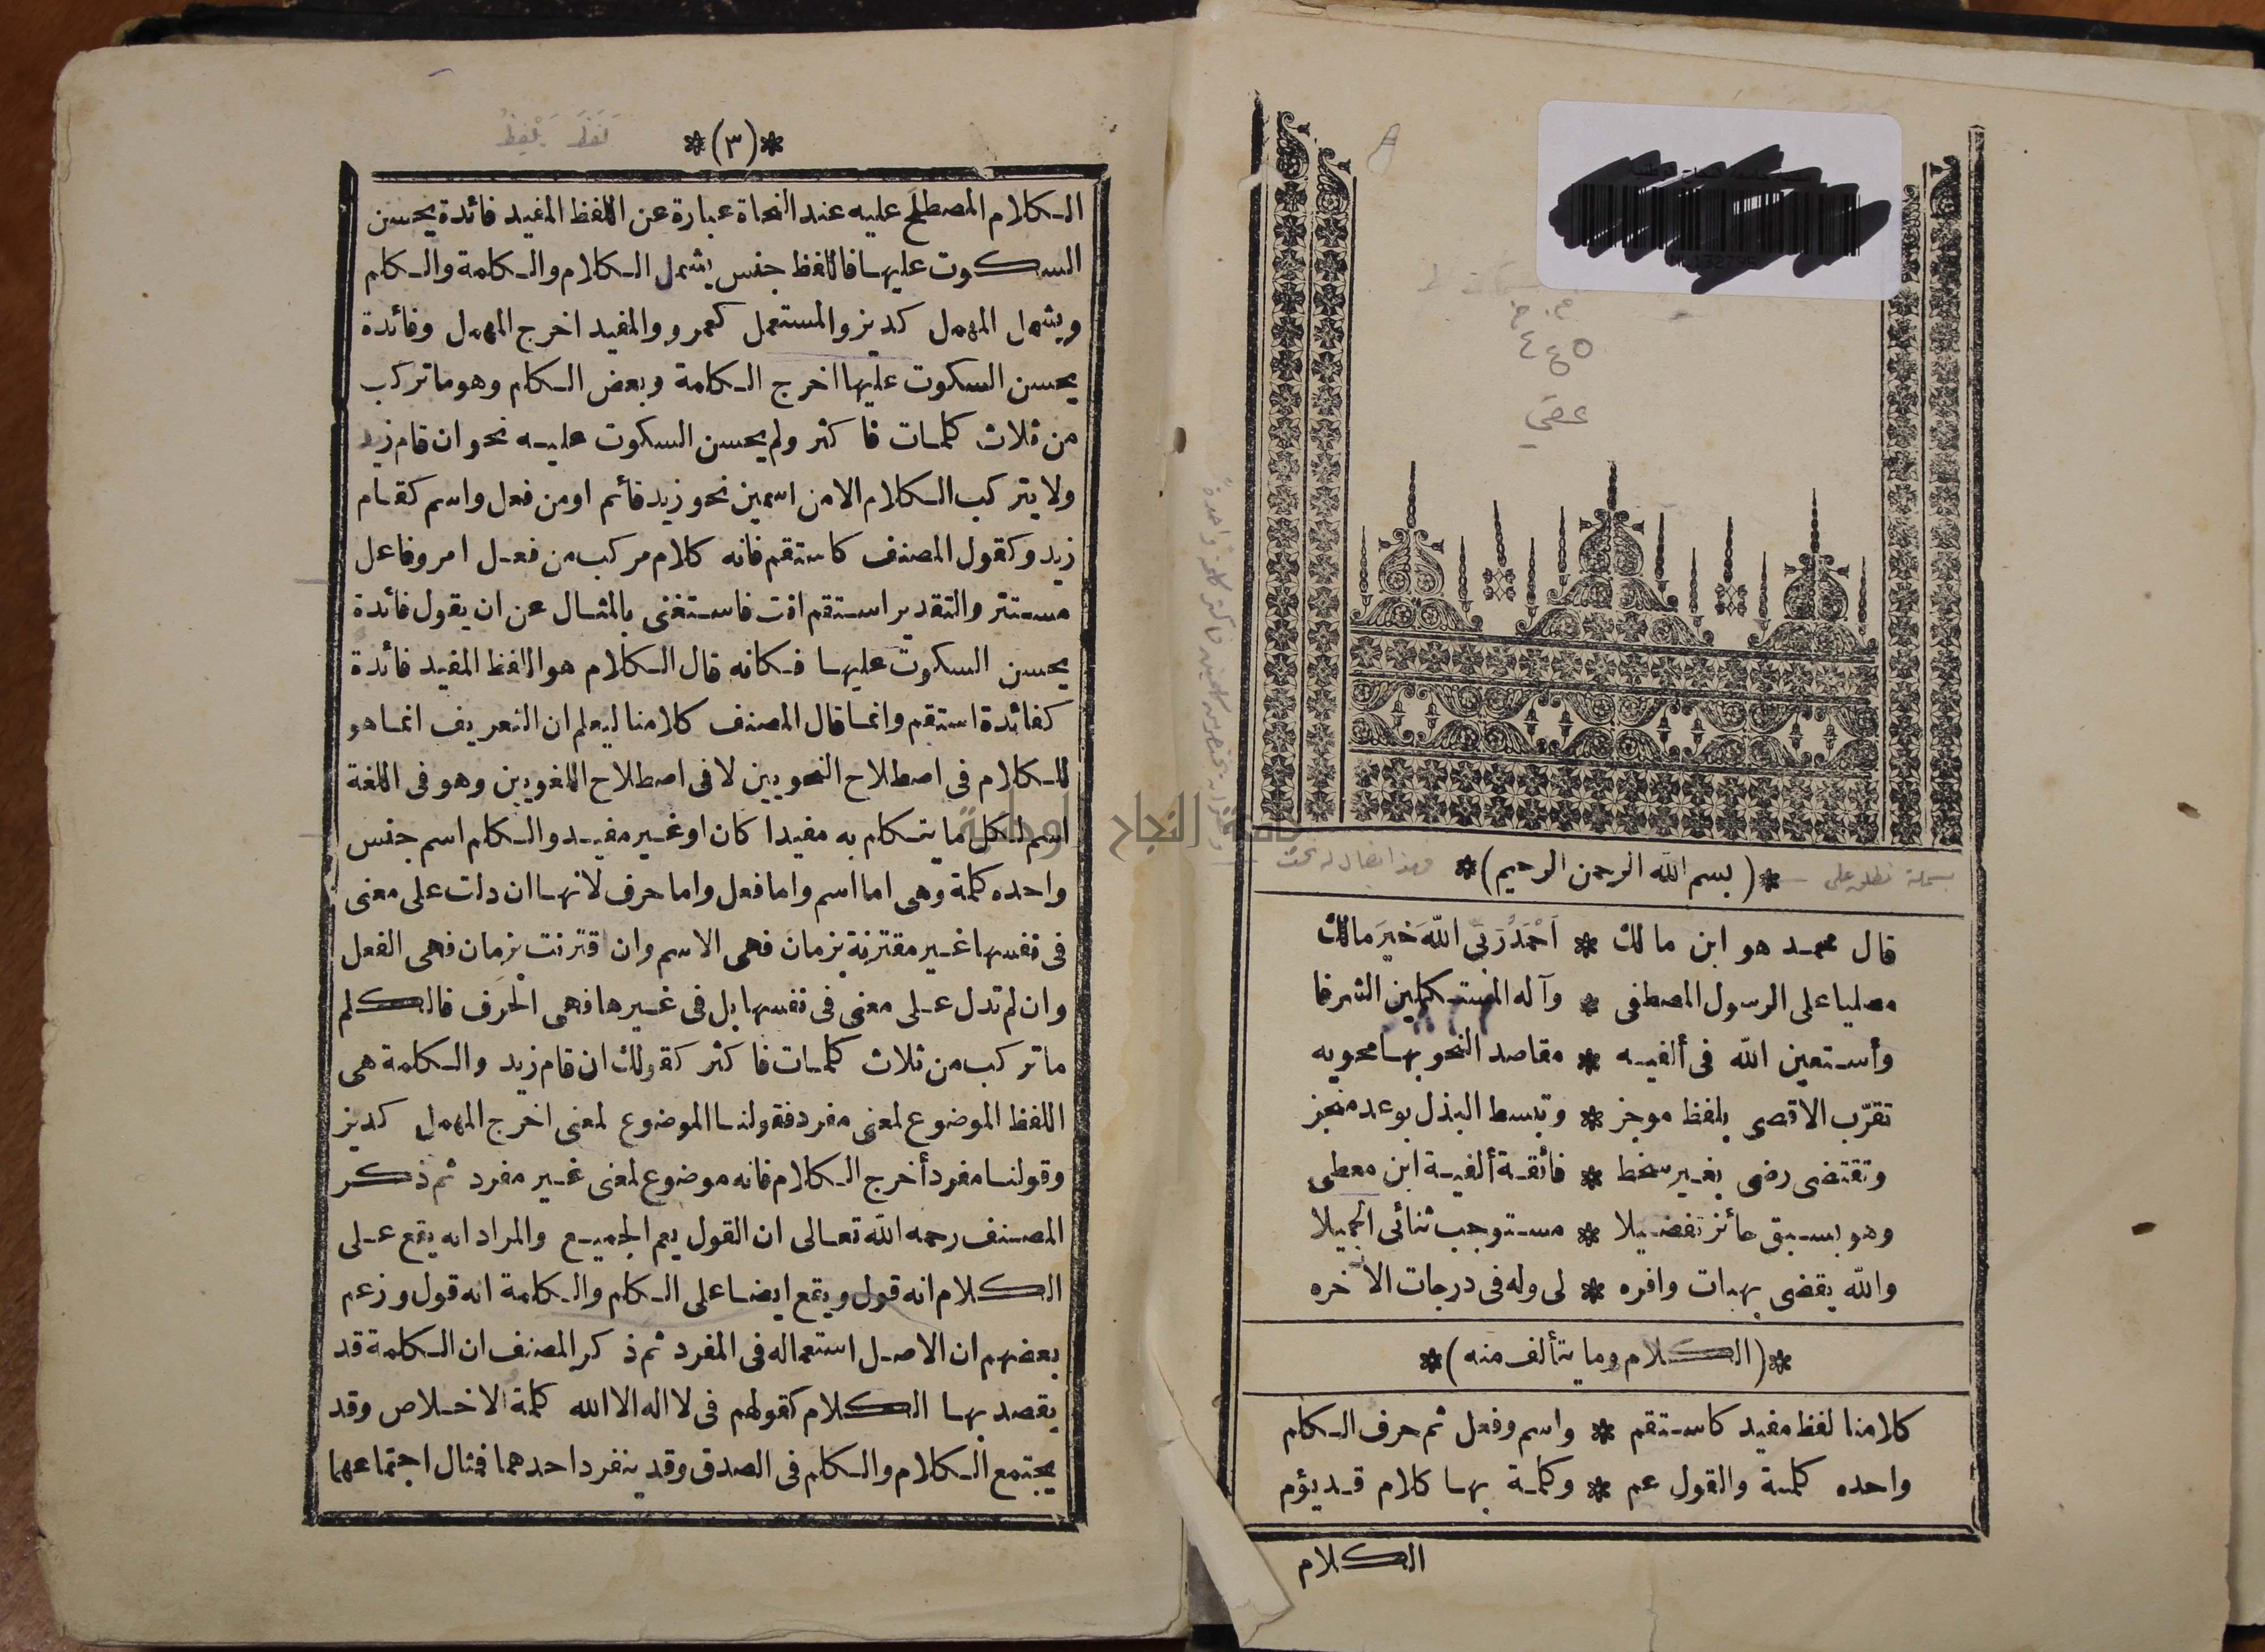 ٤٤٥
*(بسم الله الرحمن الرحيم)*
قال محمد هو ابن مالك * أَحْمَدُ رَبِّى اللّهَ خَيرَ مالك
مصليا على الرسول المصطفى * وآله المستكملين الشرفا
وأستعين الله فى ألفيه * مقاصد النحو بها محويه
تقرّب الاقصى بلفظ موجز * وتبسط البذل بوعد منجز
وتقتضى رضى بغير سخط * فائقة ألفية ابن معطى
وهو بسبق حائز تفضيلا * مستوجب ثنائى الجميلا
والله يقضى بهبات وافره * لى وله فى درجات الآخره
*(الكلام وما يتألف منه)*
كلامنا لفظ مفيد كاستقم * واسم وفعل ثم حرف الكلم
واحده كلمة والقول عم * وكلمة بها كلام قد يؤم
الكلام
لَفَظَ يَلْفِظُ
*(٣)*
الكلام المصطلح عليه عند النحاة عبارة عن اللفظ المفيد فائدة يحسن
السكوت عليها فاللفظ جنس يشمل الكلام والكلمة والكلم
ويشمل المهمل كديز والمستعمل كعمرو والمفيد اخرج المهمل وفائدة
يحسن السكوت عليها اخرج الكلمة وبعض الكلم وهو ما تركب
من ثلاث كلمات فا كثر ولم يحسن السكوت عليه نحو ان قام زيد
ولا يتركب الكلام الا من اسمين نحو زيد قائم او من فعل واسم كقام
زيد وكقول المصنف كاستقم فانه كلام مركب من فعل امر وفاعل
مستتر والتقدير استقم انت فاستغنى بالمثال عن ان يقول فائدة
يحسن السكوت عليها فكانه قال الكلام هو اللفظ المفيد فائدة
كفائدة استقم وانما قال المصنف كلامنا ليعلم ان التعريف انما هو
للكلام فى اصطلاح النحويين لا فى اصطلاح اللغويين وهو فى اللغة
اسم لكل ما يتكلم به مفيدا كان او غير مفيد والكلم اسم جنس
واحده كلمة وهى اما اسم واما فعل واما حرف لانها ان دلت على معنى
فى نفسها غير مقترنة بزمان فهى الاسم وان اقترنت بزمان فهى الفعل
وان لم تدل على معنى فى نفسها بل فى غيرها فهى الحرف فالكلم
ما تركب من ثلاث كلمات فا كثر كقولك ان قام زيد والكلمة هى
اللفظ الموضوع لمعنى مفرد فقولنا الموضوع لمعنى اخرج المهمل كديز
وقولنا مفرد أخرج الكلام فانه موضوع لمعنى غير مفرد ثم ذكر
المصنف رحمه الله تعالى ان القول يعم الجميع والمراد انه يقع على
الكلام انه قول ويقع ايضا على الكلم والكلمة انه قول وزعم
بعضهم ان الاصل استعماله فى المفرد ثم ذكر المصنف ان الكلمة قد
يقصد بها الكلام كقولهم فى لا اله الا الله كلمة الاخلاص وقد
يجتمع الكلام والكلم فى الصدق وقد ينفرد احدهما فمثال اجتماعهما